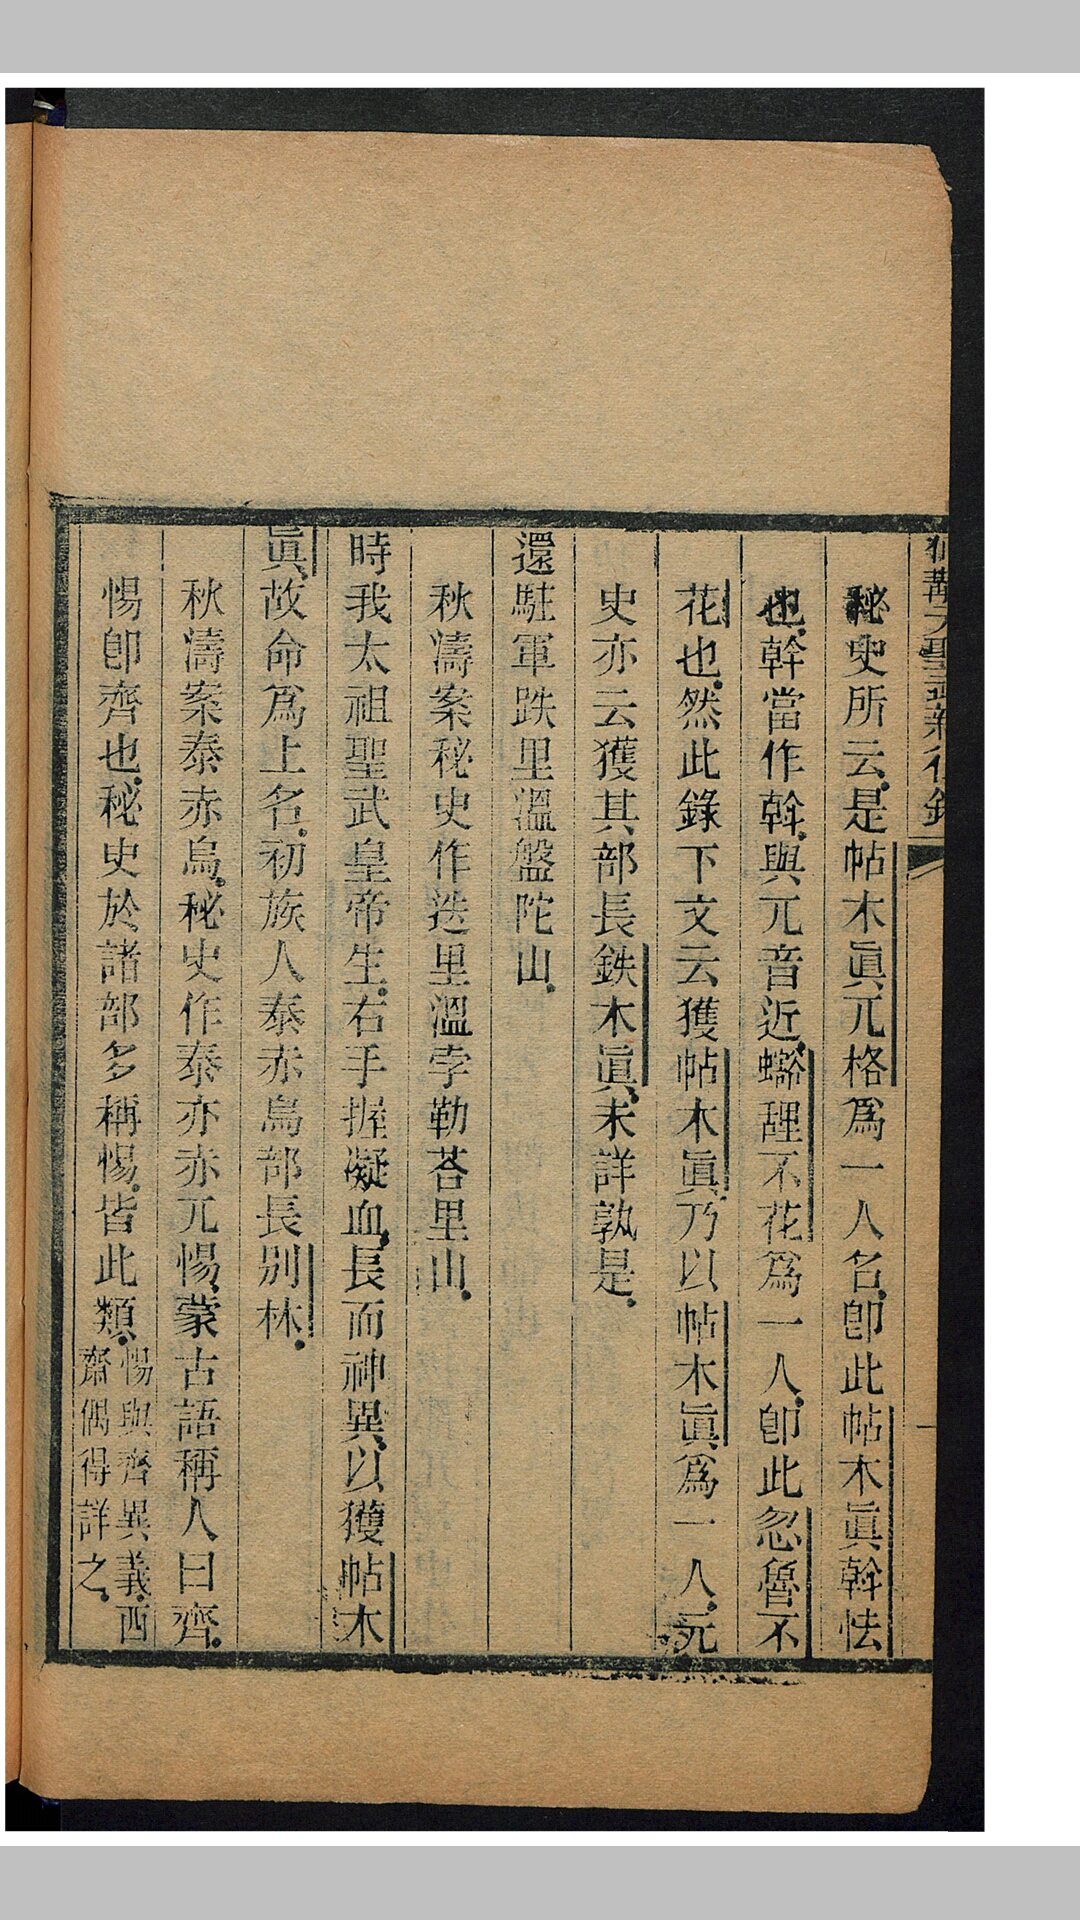 秘史所云是帖木眞兀格爲一人名卽此帖木眞斡怯
也.斡當作斡.與兀音近.蠮𨤲不花爲一人.卽此忽魯不
花也.然此錄下文云獲帖木眞.乃以帖木眞爲一人.元
史亦云獲其部長鉄木眞.未詳孰是.
還駐軍跌里溫盤陀山.
秋濤案秘史作迭里溫孛勒荅里山.
時我太祖聖武皇帝生.右手握凝血.長而神異.以獲帖木
眞.故命爲上名.初族人泰赤烏部長別林.
秋濤案泰赤烏.秘史作泰亦赤兀惕.蒙古語稱人曰齊.
惕卽齊也.秘史於諸部多稱惕.皆此類.惕與齊異義.西
齋偶得詳之.